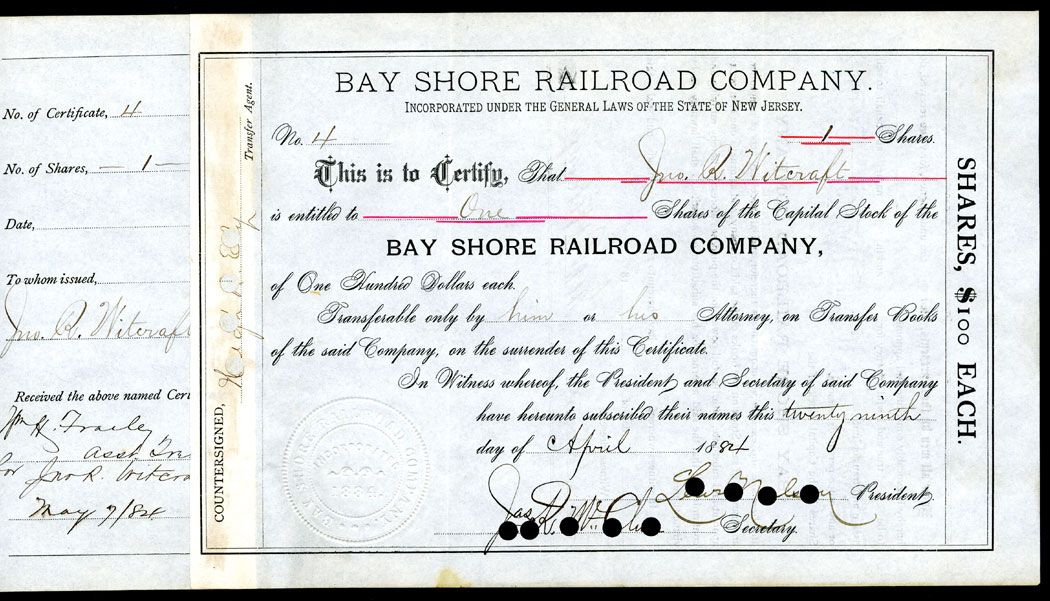 No. of Certificate, 4
No. of Shares, 1
Date,
To whom issued,
Jno. R. Witcraft
Received the above named Cert
Wm H. Frailey
Asst Tre
for Jno R. Witcra
May 9/84
COUNTERSIGNED,
Transfer Agent.
BAY SHORE RAILROAD COMPANY.
INCORPORATED UNDER THE GENERAL LAWS OF THE STATE OF NEW JERSEY.
No. 4 1 Shares.
This is to Certify, That Jno. R. Witcraft
is entitled to One Shares of the Capital Stock of the
BAY SHORE RAILROAD COMPANY,
of One Hundred Dollars each.
Transferable only by him or his Attorney, on Transfer Books
of the said Company, on the surrender of this Certificate.
In Witness whereof, the President and Secretary of said Company
have hereunto subscribed their names this twenty ninth
day of April 1884
President.
Jas R. Secretary.
1884
SHARES, $100 EACH.